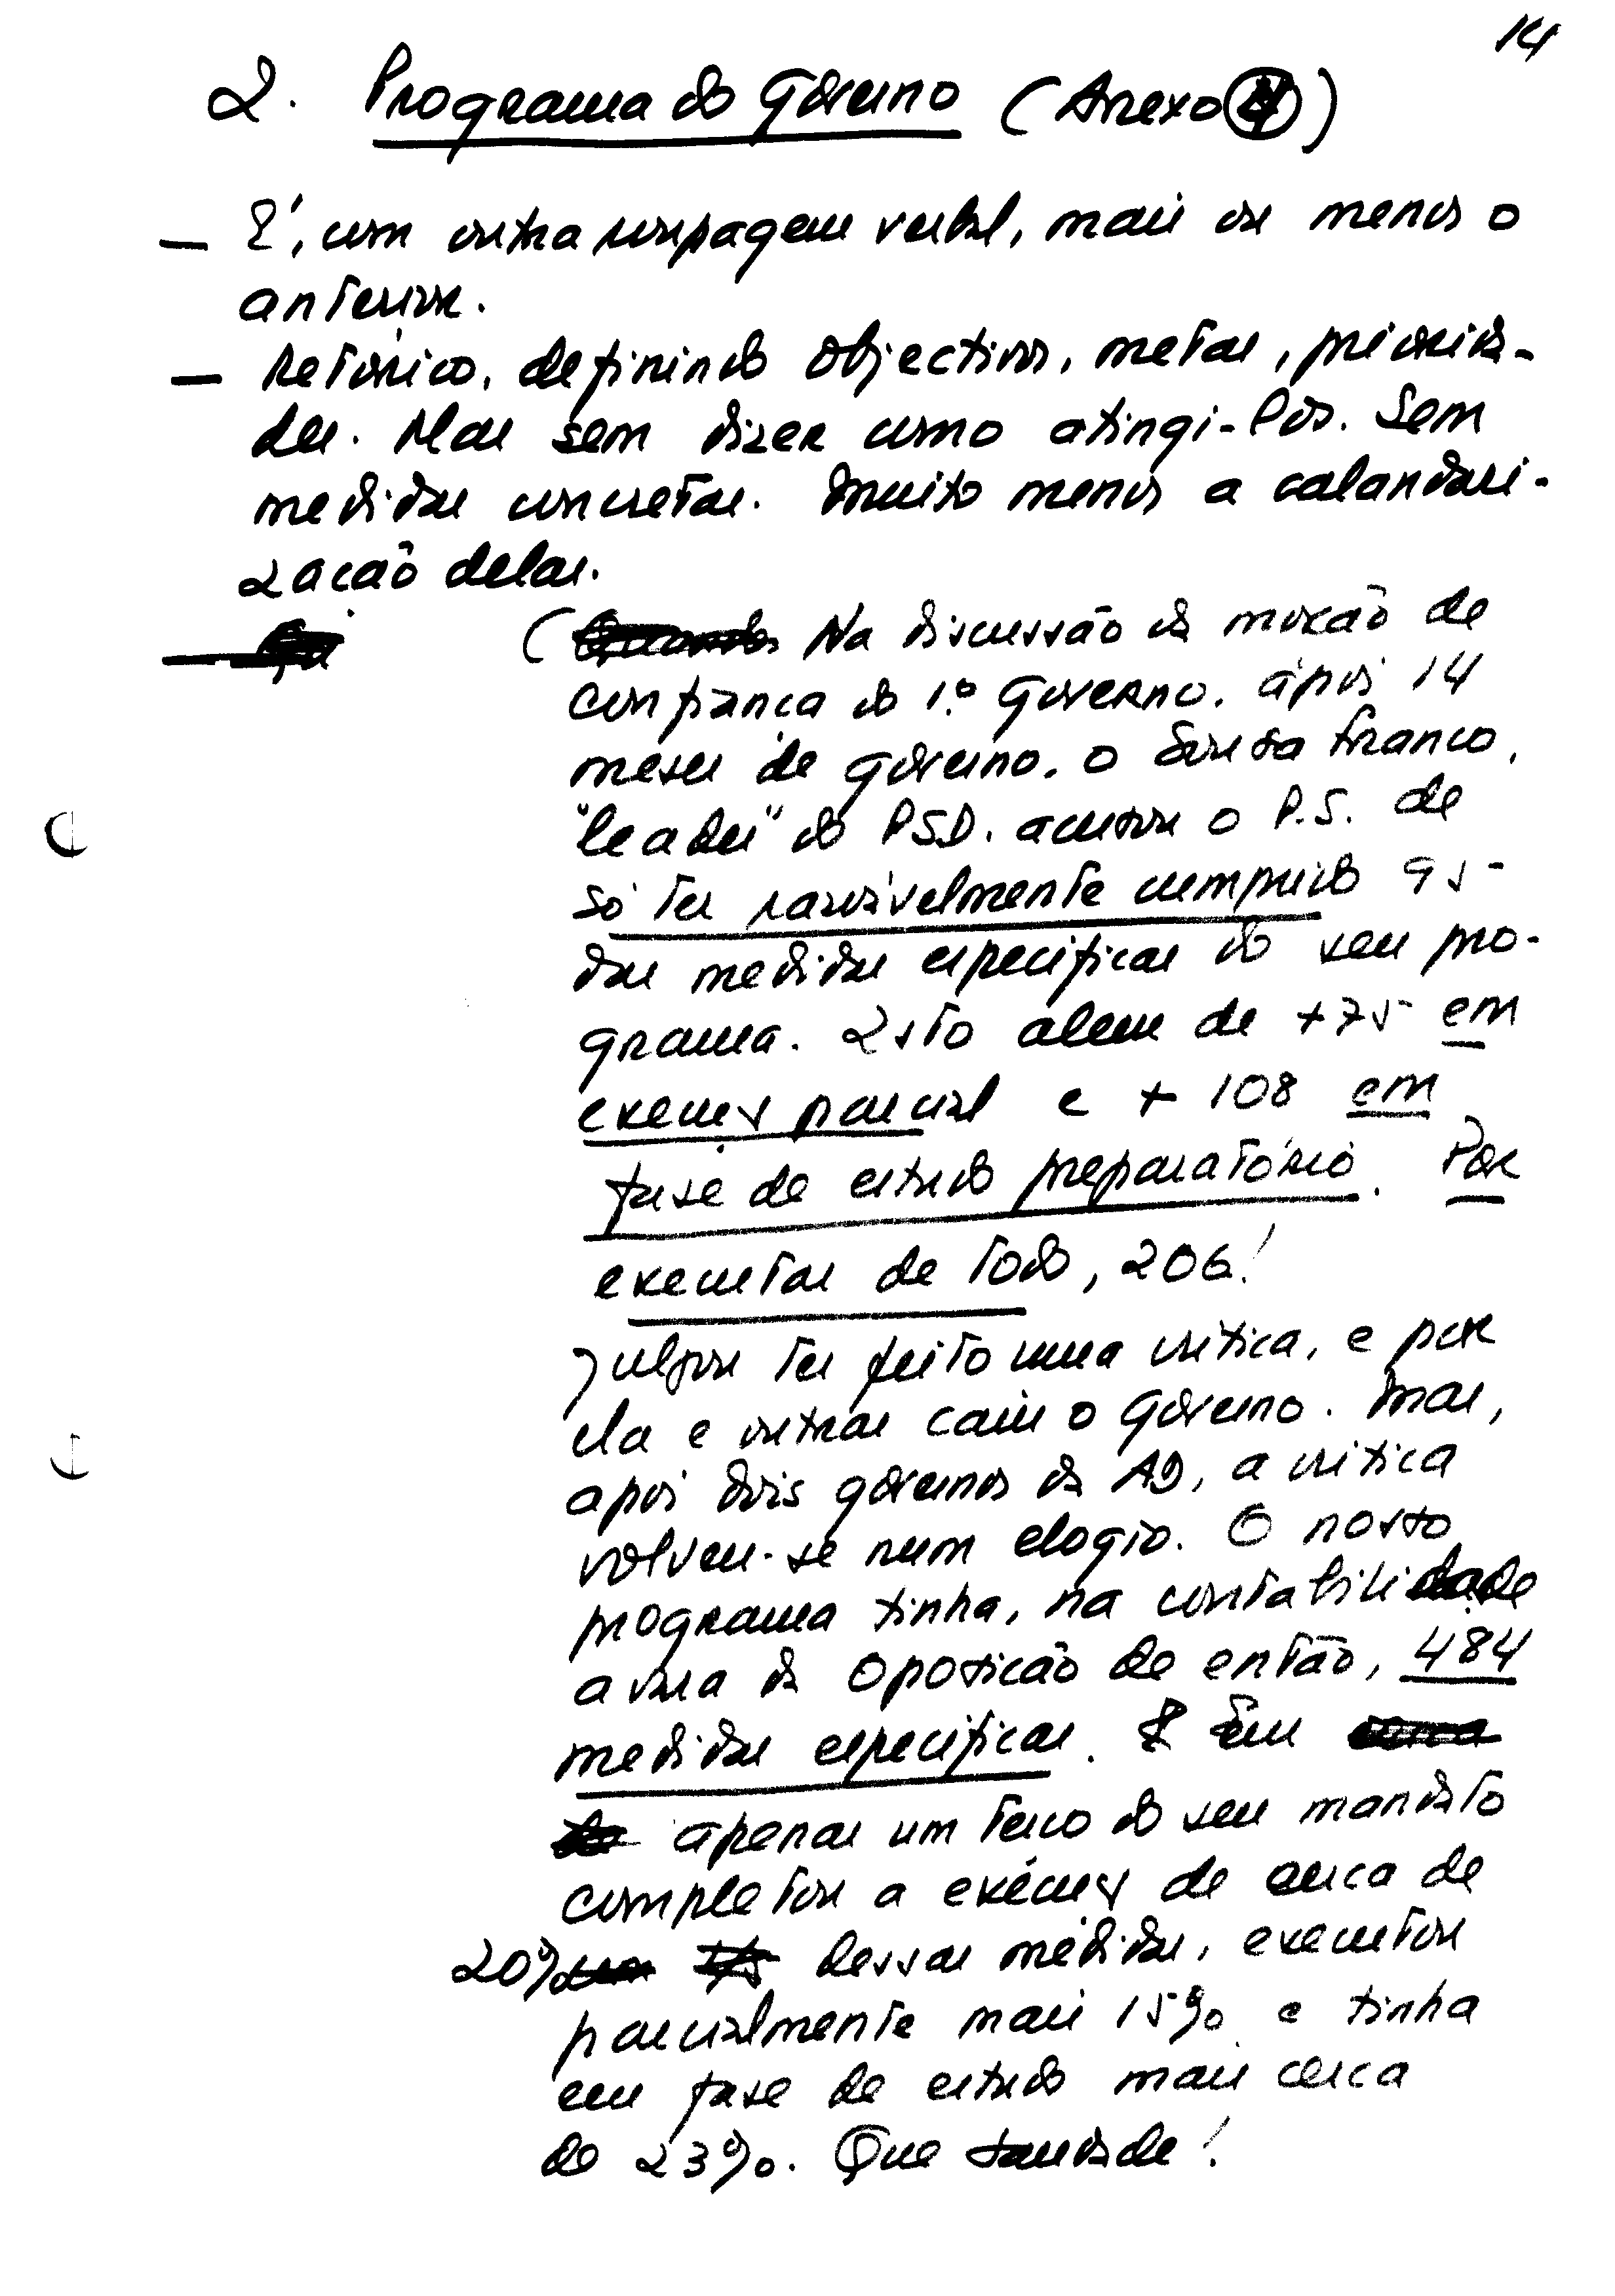 14
2. Programa do Governo (Anexo 4)
— É, com outra roupagem verbal, mais ou menos o
anterior.
— Retórico, definindo objectivos, metas, priorida-
des. Mas sem dizer como atingi-los. Sem
medidas concretas. Muito menos a calandari-
zação delas.
( Na discussão da moção de
confiança do 1.º Governo, após 14
meses de governo, o Sousa Franco,
"leader" do PSD. acusou o P.S. de
só ter razoàvelmente cumprido 95
das medidas específicas do seu pro-
grama. Isto alem de +75 em
execução parcial e + 108 em
fase de estudo preparatório. Por
executar de todo, 206!
Julgou ter feito uma crítica, e por
ela e outras caiu o Governo. Mas,
após dois governos da AD, a crítica
volveu-se num elogio. O nosso
programa tinha, na contabilidade
avara da Oposição de então, 484
medidas específicas. Em
apenas um terço do seu mandato
completou a execução de cerca de
20% dessas medidas, executou
parcialmente mais 15% e tinha
em fase de estudo mais cerca
de 23%. Que saudade!